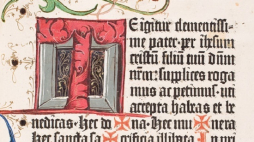 T E igitur clementissi
me pater· per ihesum
cristum filiū tuū dūm
nrm: supplices roga
mus ac petimus· uti
accepta habeas et be
nedicas· Hec do✠na· hec mu✠nera
hec sancta sa✠crificia illibata In pri